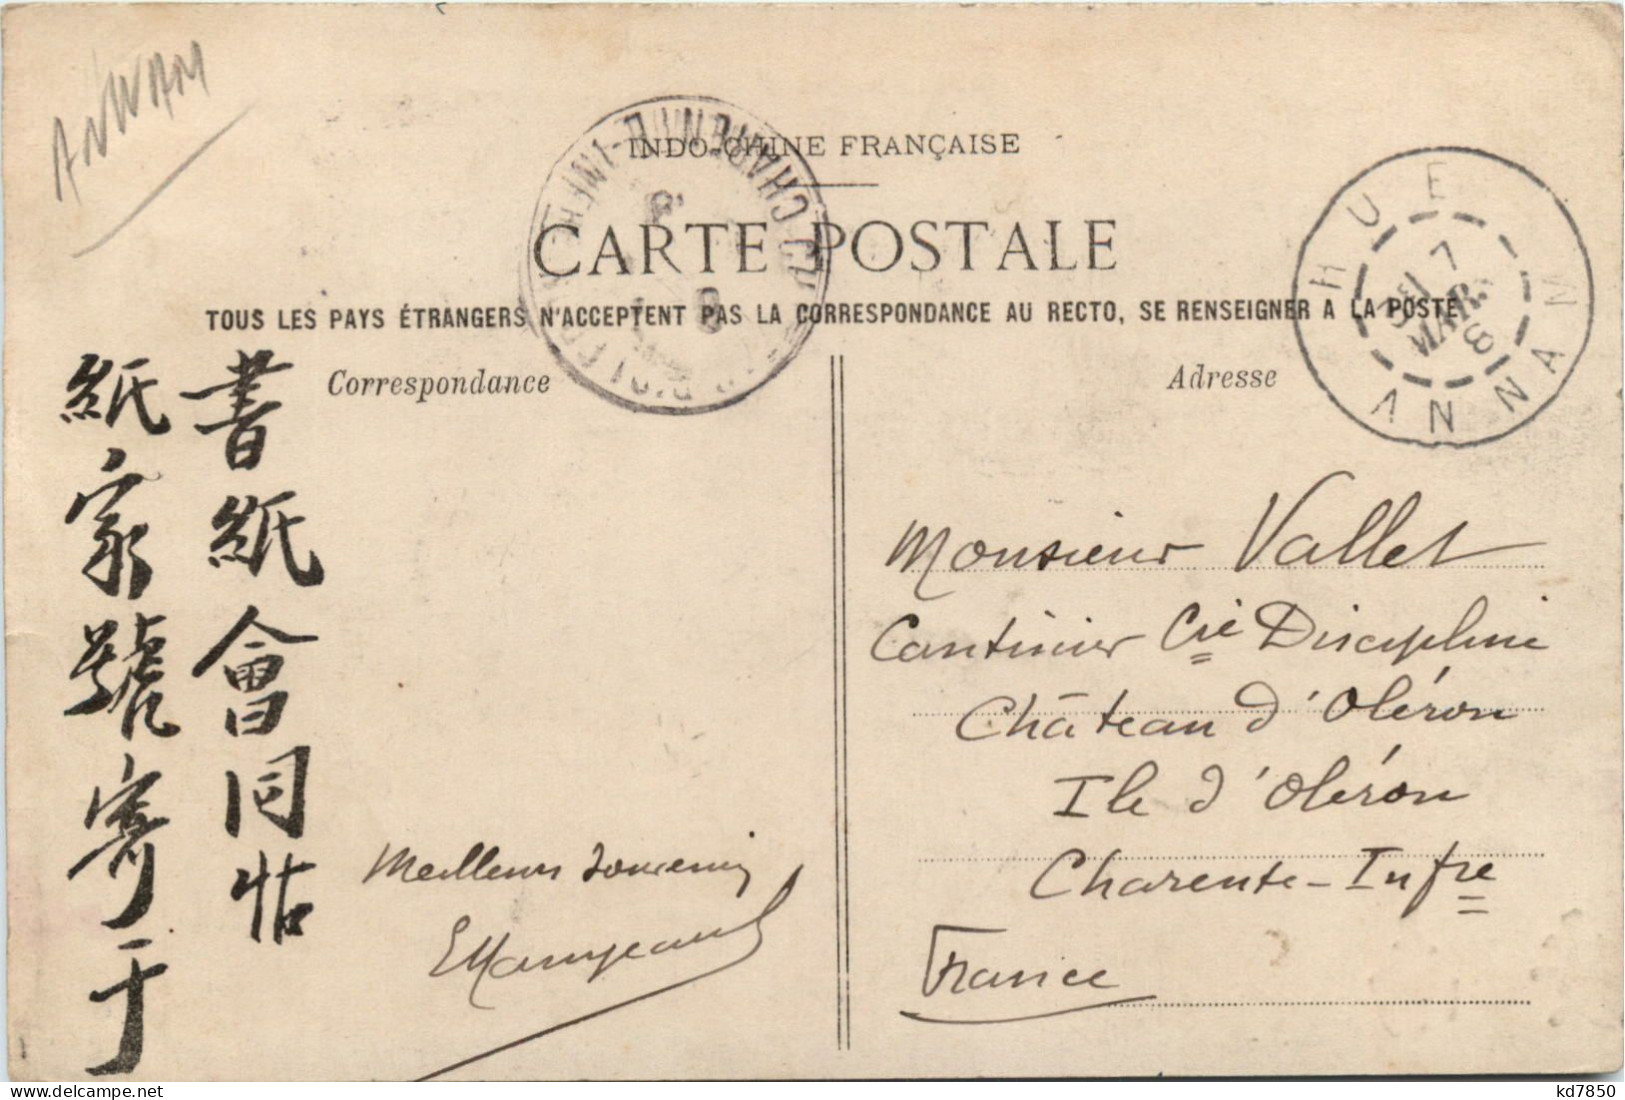 ANNAM
INDO-CHINE FRANÇAISE
CARTE POSTALE
TOUS LES PAYS ÉTRANGERS N'ACCEPTENT PAS LA CORRESPONDANCE AU RECTO, SE RENSEIGNER A LA POSTE
HUE
7
MARS
08
ANNAM
CHARENTE-INFRE
Correspondance
Adresse
書紙會同帖
紙家號寄于
Meilleurs souvenirs
Monsieur Vallet
Cantinier Cie Discipline
Château d'Oléron
Ile d'Oléron
Charente-Infre
France
kd7850